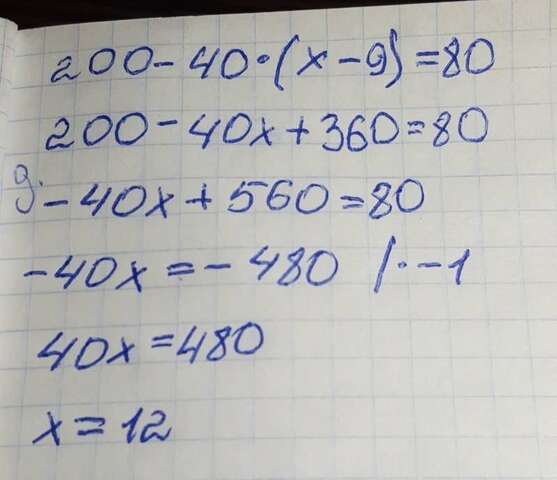 200-40·(x-9)=80
200-40x+360=80
-40x+560=80
-40x=-480 /·-1
40x=480
x=12